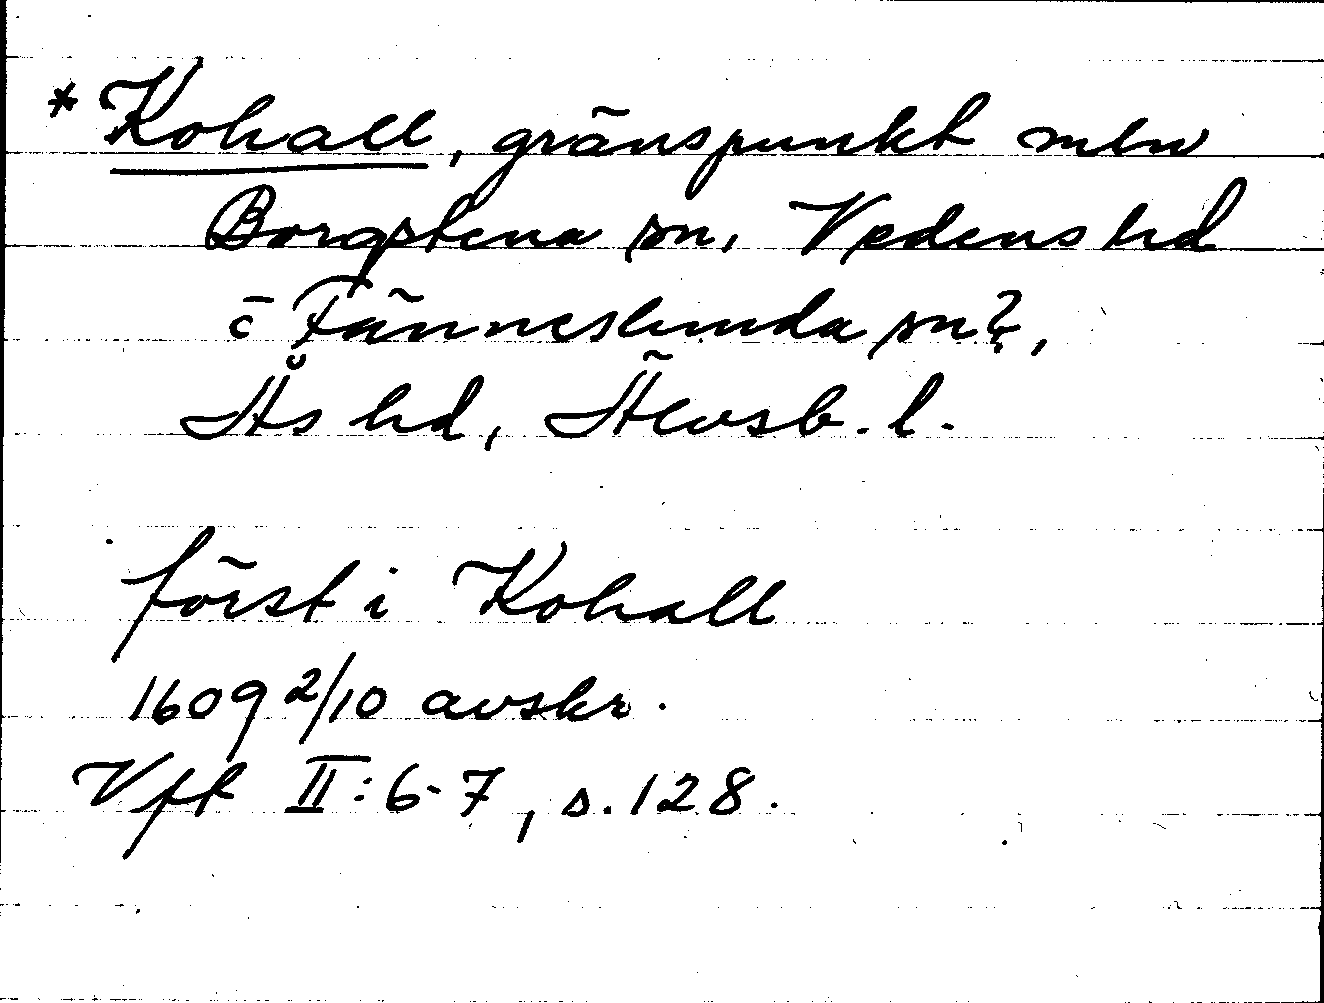 * Kohall, gränspunkt mlw
Borgstena sn, Vedens hd
o Fänneslunda sn?,
Ås hd, Älvsb. l.
först i Kohall
1609 2/10 avskr.
Vft II: 6-7, s. 128.